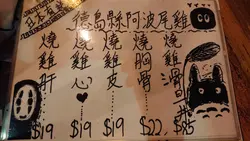 德島縣阿波尾雞
燒雞肝 $19
燒雞心 $19
燒雞皮 $19
燒雞胸骨 $22
$85